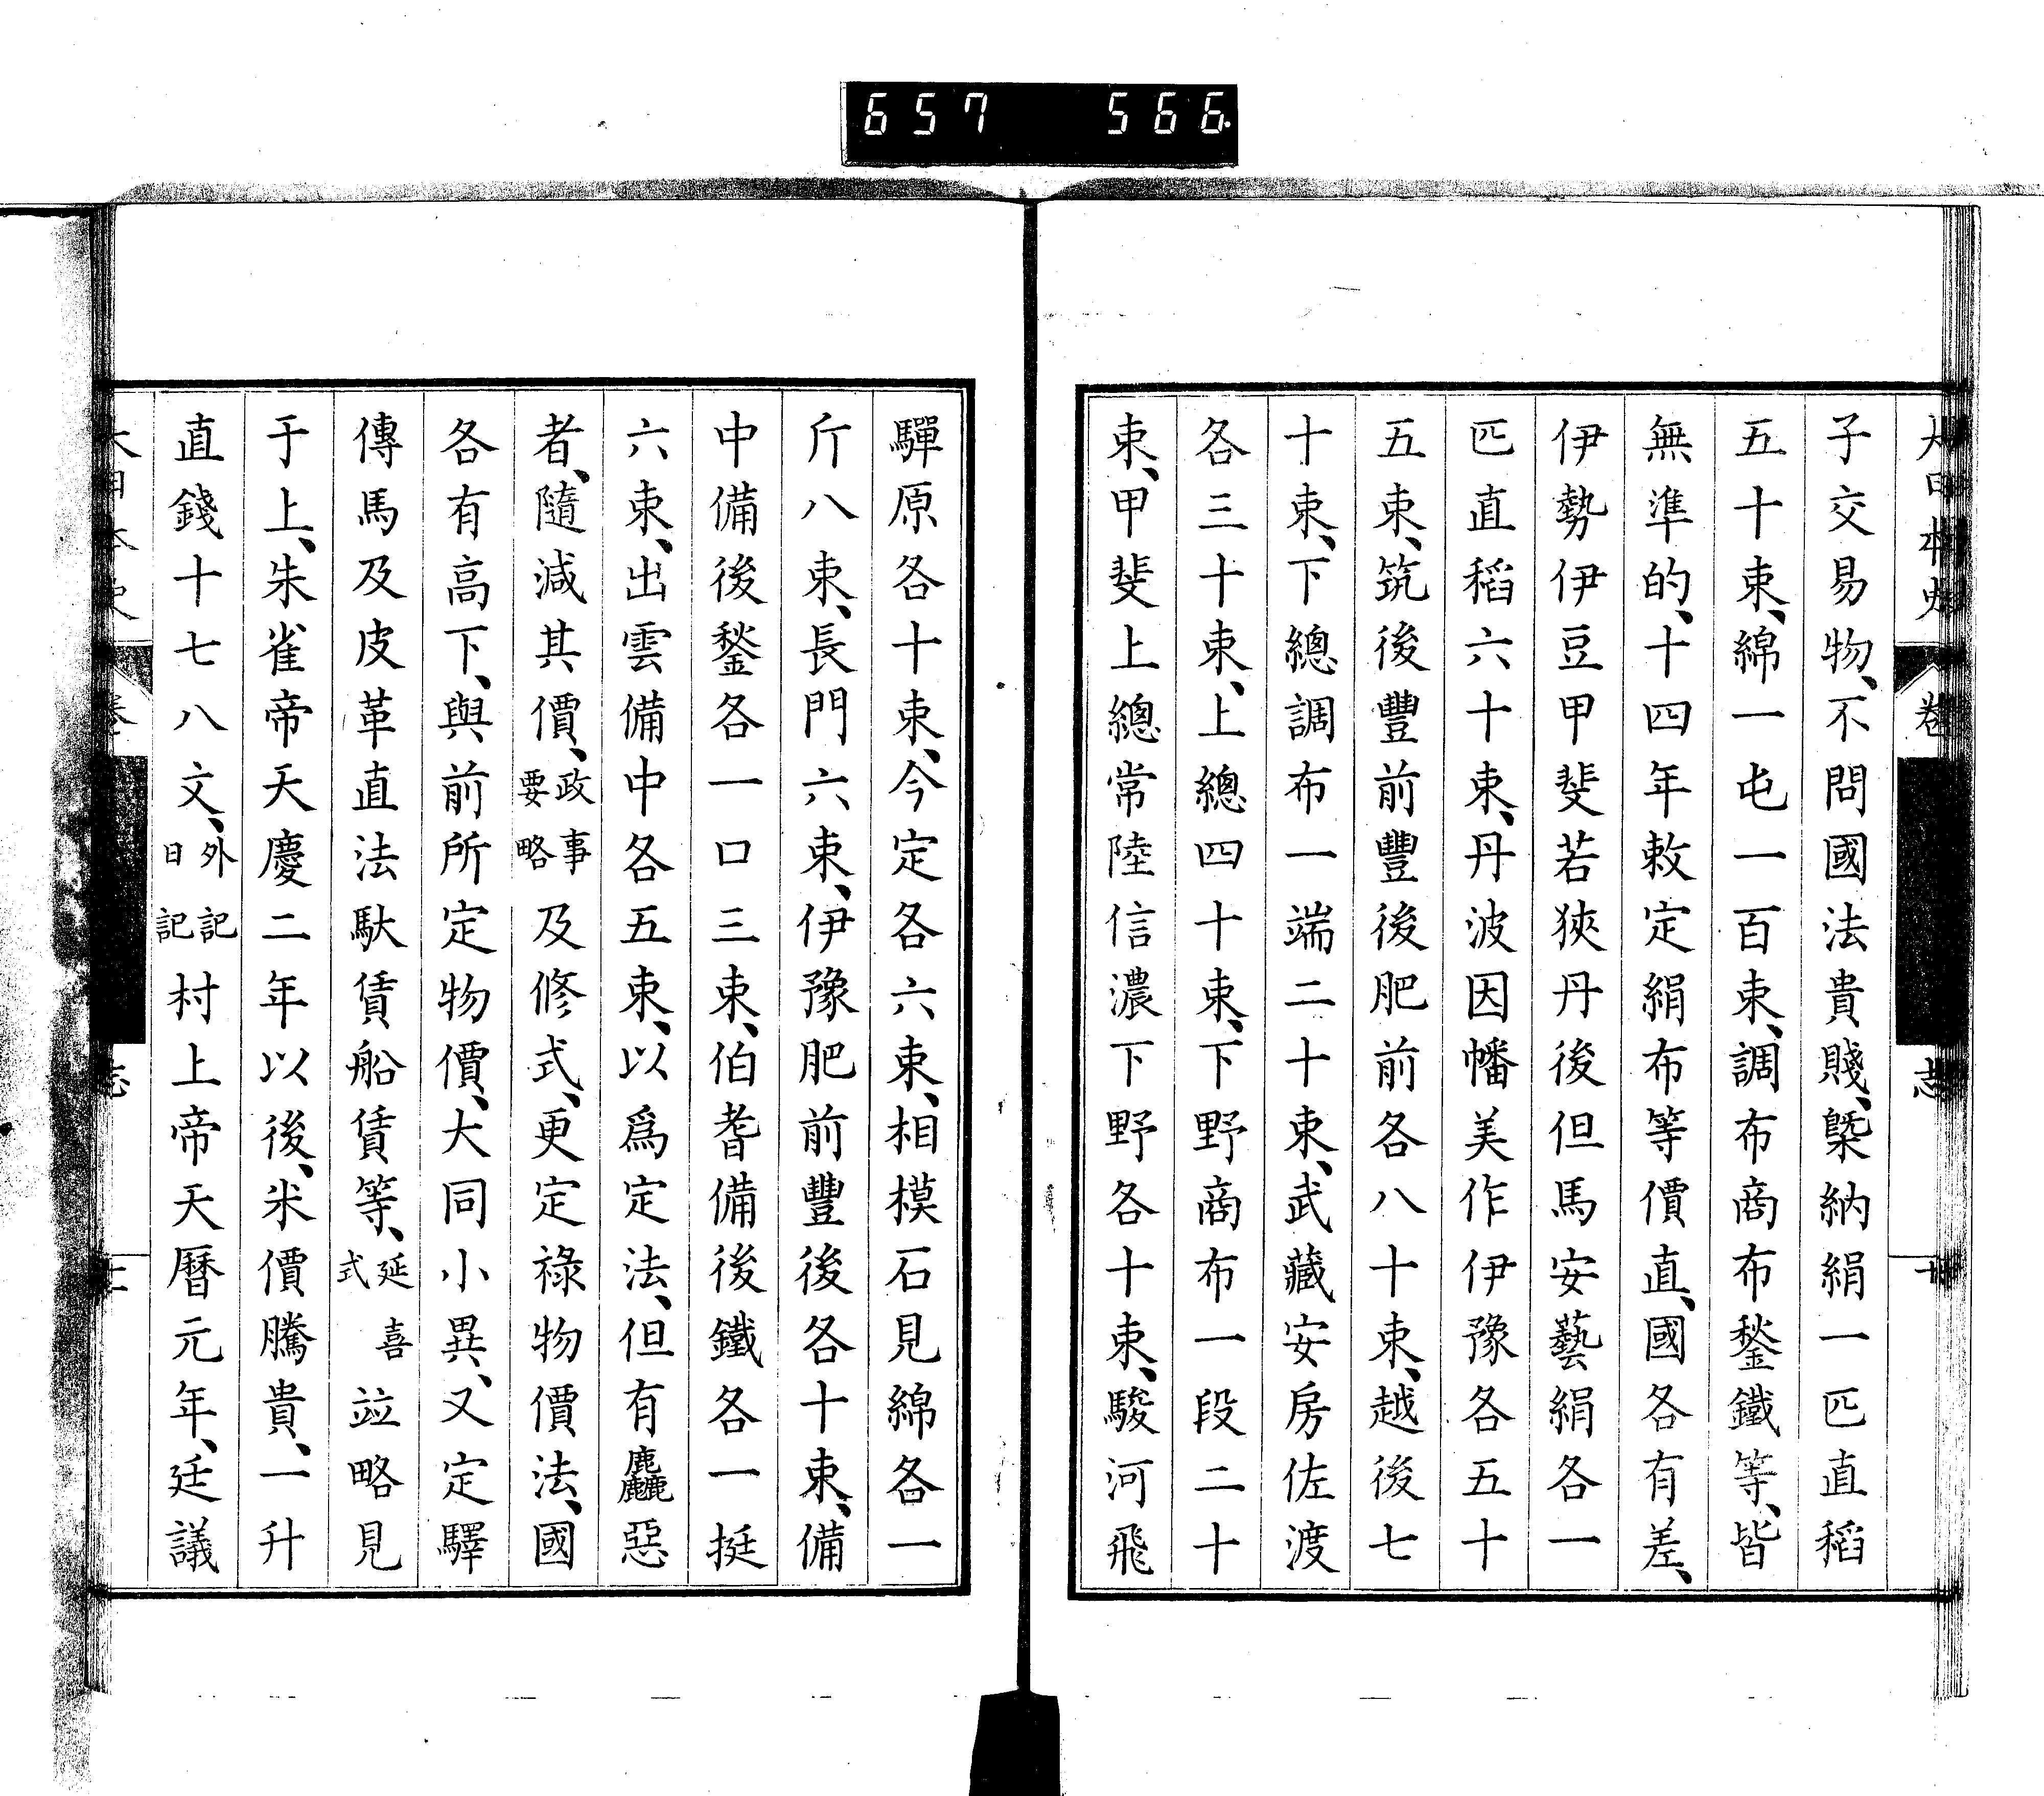 657 566
大日本史 卷 志
子交易物、不問國法貴賤、槩納絹一匹直稻
五十束、綿一屯一百束、調布商布鍫鐵等、皆
無準的、十四年敕定絹布等價直、國各有差、
伊勢伊豆甲斐若狹丹後但馬安藝絹各一
匹直稻六十束、丹波因幡美作伊豫各五十
五束、筑後豐前豐後肥前各八十束、越後七
十束、下總調布一端二十束、武藏安房佐渡
各三十束、上總四十束、下野商布一段二十
束、甲斐上總常陸信濃下野各十束、駿河飛
驒原各十束、今定各六束、相模石見綿各一
斤八束、長門六束、伊豫肥前豐後各十束、備
中備後鍫各一口三束、伯耆備後鐵各一挺
六束、出雲備中各五束、以爲定法、但有麤惡
者、隨減其價、政事要略及修式、更定祿物價法、國
各有高下、與前所定物價、大同小異、又定驛
傳馬及皮革直法馱賃船賃等、延喜式竝略見
于上、朱雀帝天慶二年以後、米價騰貴、一升
直錢十七八文、外記日記村上帝天曆元年、廷議
大日本史 卷 志